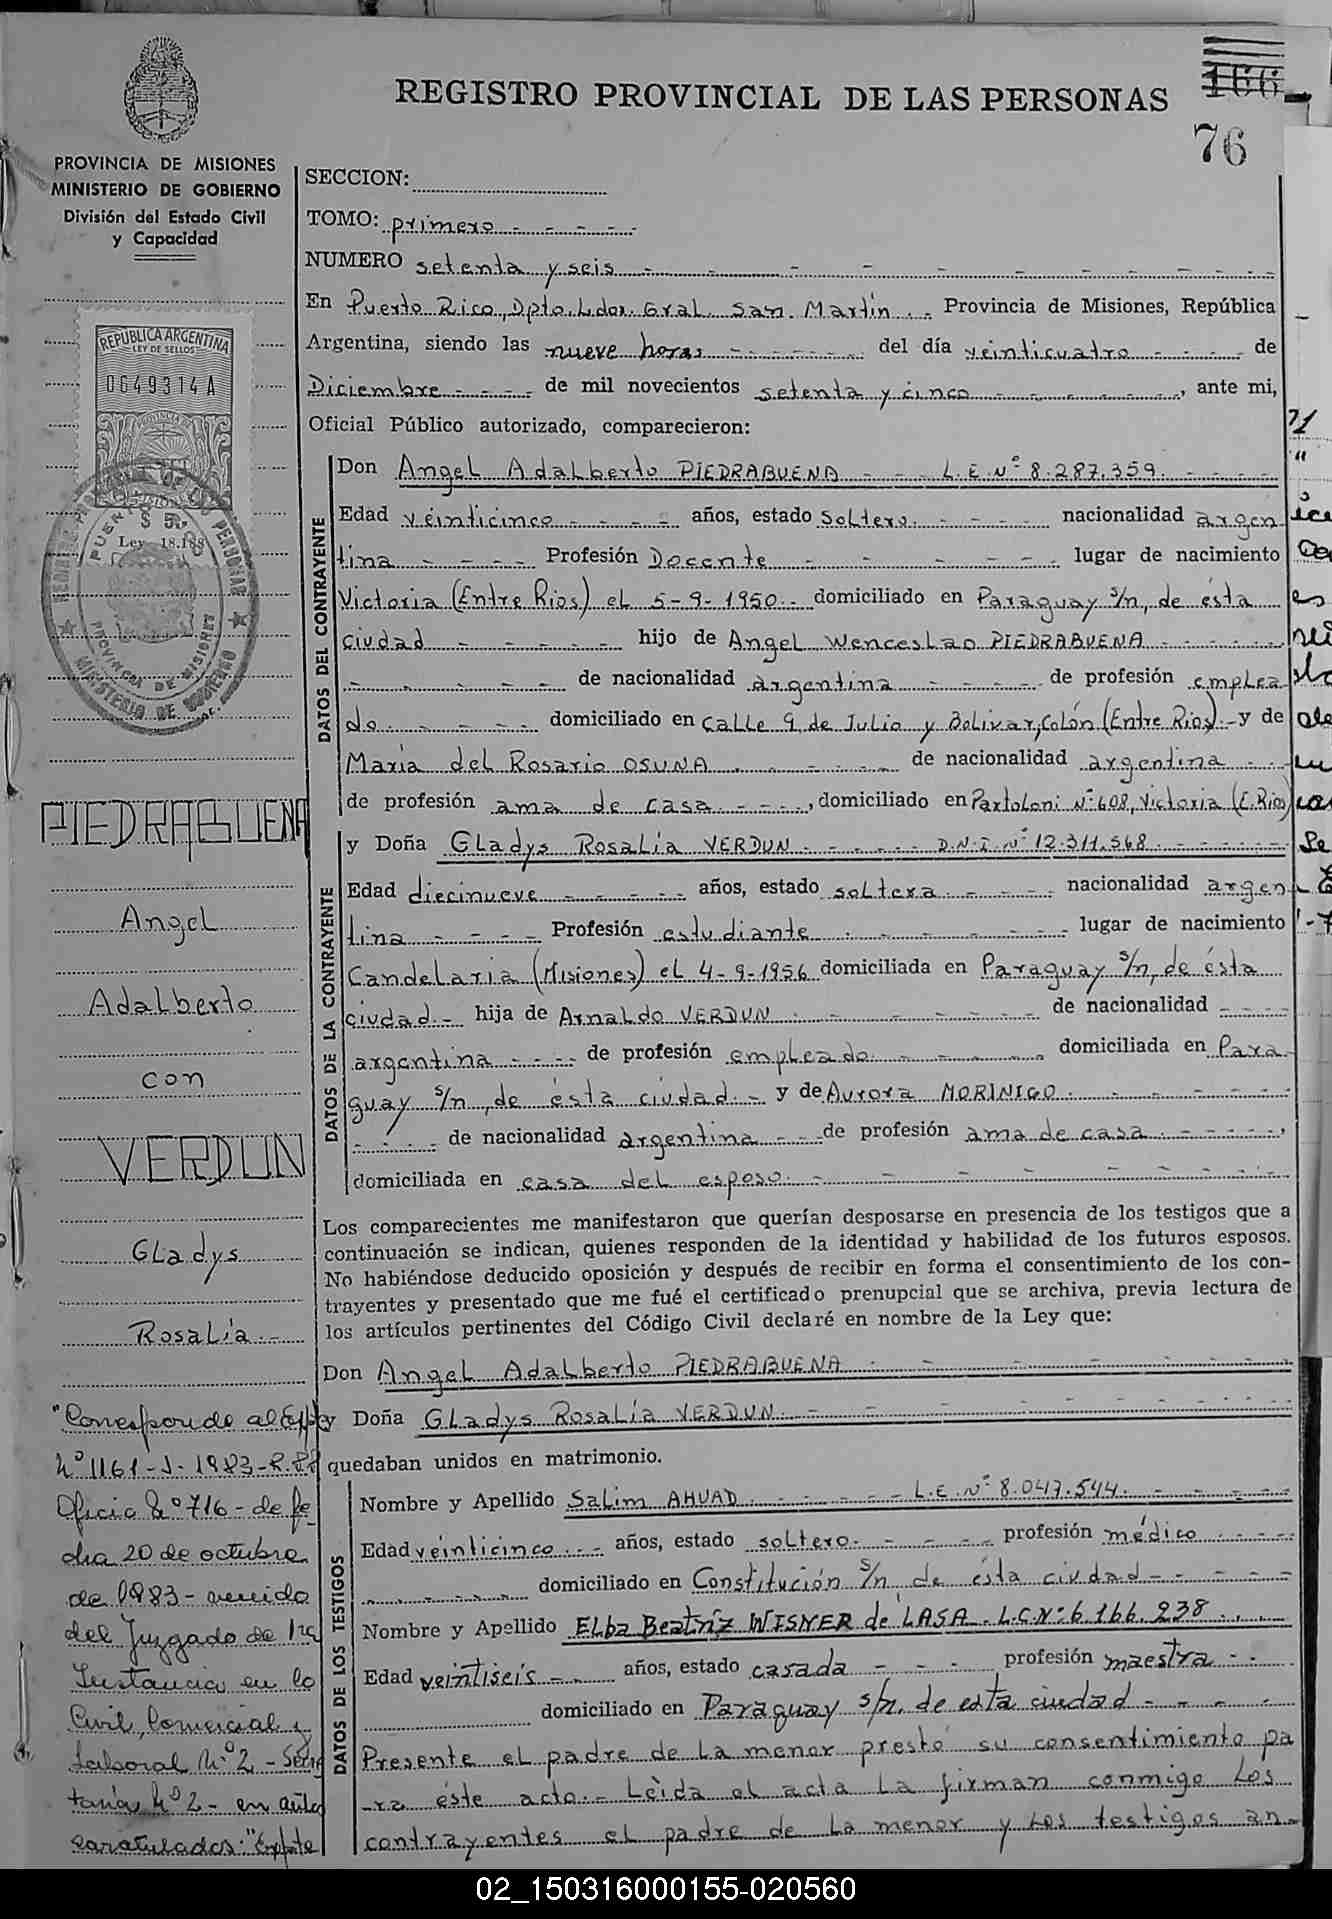 REGISTRO PROVINCIAL DE LAS PERSONAS
166
76
PROVINCIA DE MISIONES
MINISTERIO DE GOBIERNO
División del Estado Civil
y Capacidad
REPUBLICA ARGENTINA
LEY DE SELLOS
0649314 A
Ley 18.188
PUERTO RICO
PROVINCIA DE MISIONES
MINISTERIO DE GOBIERNO
PIEDRABUENA
Angel
Adalberto
con
VERDUN
Gladys
Rosalía.-
"Corresponde al Expte
Nº 1161-J-1983-R.
Oficio Nº 716- de fe
cha 20 de octubre
de 1983- venido
del Juzgado de 1ra
Instancia en lo
Civil, Comercial y
Laboral Nº 2 - Secre
taría Nº 2- en autos
caratulados: "Expte
SECCION:
TOMO: primero - - - - -
NUMERO setenta y seis - - - - -
En Puerto Rico, Dpto. Ldor. Gral. San Martín - - Provincia de Misiones, República
Argentina, siendo las nueve horas - - - - - del día veinticuatro - - - - de
Diciembre - - - - de mil novecientos setenta y cinco - - - - -, ante mi,
Oficial Público autorizado, comparecieron:
DATOS DEL CONTRAYENTE
Don Angel Adalberto PIEDRABUENA - - L.E.Nº 8.287.359. - - - -
Edad veinticinco - - - - años, estado soltero. - - - - nacionalidad argen
tina - - - - Profesión Docente - - - - - lugar de nacimiento
Victoria (Entre Rios) el 5-9-1950.- domiciliado en Paraguay s/n, de ésta
ciudad - - - - - hijo de Angel Wenceslao PIEDRABUENA - - - - -
- - - - - - de nacionalidad argentina - - - - - de profesión emplea
do. - - - - - domiciliado en calle 9 de Julio y Bolivar, Colón (Entre Rios).- y de
María del Rosario OSUNA - - - - - de nacionalidad argentina - -
de profesión ama de casa. - - - -, domiciliado en Partoloni Nº 608, Victoria (E.Rios)
DATOS DE LA CONTRAYENTE
y Doña Gladys Rosalía VERDUN. - - - - - D.N.I. Nº 12.311.568. - - - - -
Edad diecinueve - - - - - años, estado soltera. - - - - nacionalidad argen
tina - - - - Profesión estudiante - - - - - lugar de nacimiento
Candelaria (Misiones) el 4-9-1956 domiciliada en Paraguay s/n, de ésta
ciudad.- hija de Arnaldo VERDUN - - - - - de nacionalidad - - - -
argentina - - - - de profesión empleado. - - - - - domiciliada en Para
guay s/n, de ésta ciudad. - y de Aurora MORINIGO. - - - - -
- - - - - de nacionalidad argentina - - - de profesión ama de casa. - - - - -,
domiciliada en casa del esposo. - - - - - -
Los comparecientes me manifestaron que querían desposarse en presencia de los testigos que a
continuación se indican, quienes responden de la identidad y habilidad de los futuros esposos.
No habiéndose deducido oposición y después de recibir en forma el consentimiento de los con-
trayentes y presentado que me fué el certificado prenupcial que se archiva, previa lectura de
los artículos pertinentes del Código Civil declaré en nombre de la Ley que:
Don Angel Adalberto PIEDRABUENA - - - - -
y Doña Gladys Rosalía VERDUN. - - - - -
quedaban unidos en matrimonio.
DATOS DE LOS TESTIGOS
Nombre y Apellido Salim AHUAD. - - - - - L.E. Nº 8.047.544. - - - - -
Edad veinticinco. - - años, estado soltero. - - - - profesión médico - - - -
- - - - - domiciliado en Constitución s/n, de ésta ciudad - - - - -
Nombre y Apellido Elba Beatríz WISNER de LASA. L.C.Nº 6.166.238 - - -
Edad veintiseis - - años, estado casada - - - profesión maestra - -
domiciliado en Paraguay s/n. de esta ciudad - - - -
Presente el padre de la menor prestó su consentimiento pa
-ra éste acto.- Leída el acta la firman conmigo los
contrayentes el padre de la menor y los testigos an-
02_150316000155-020560